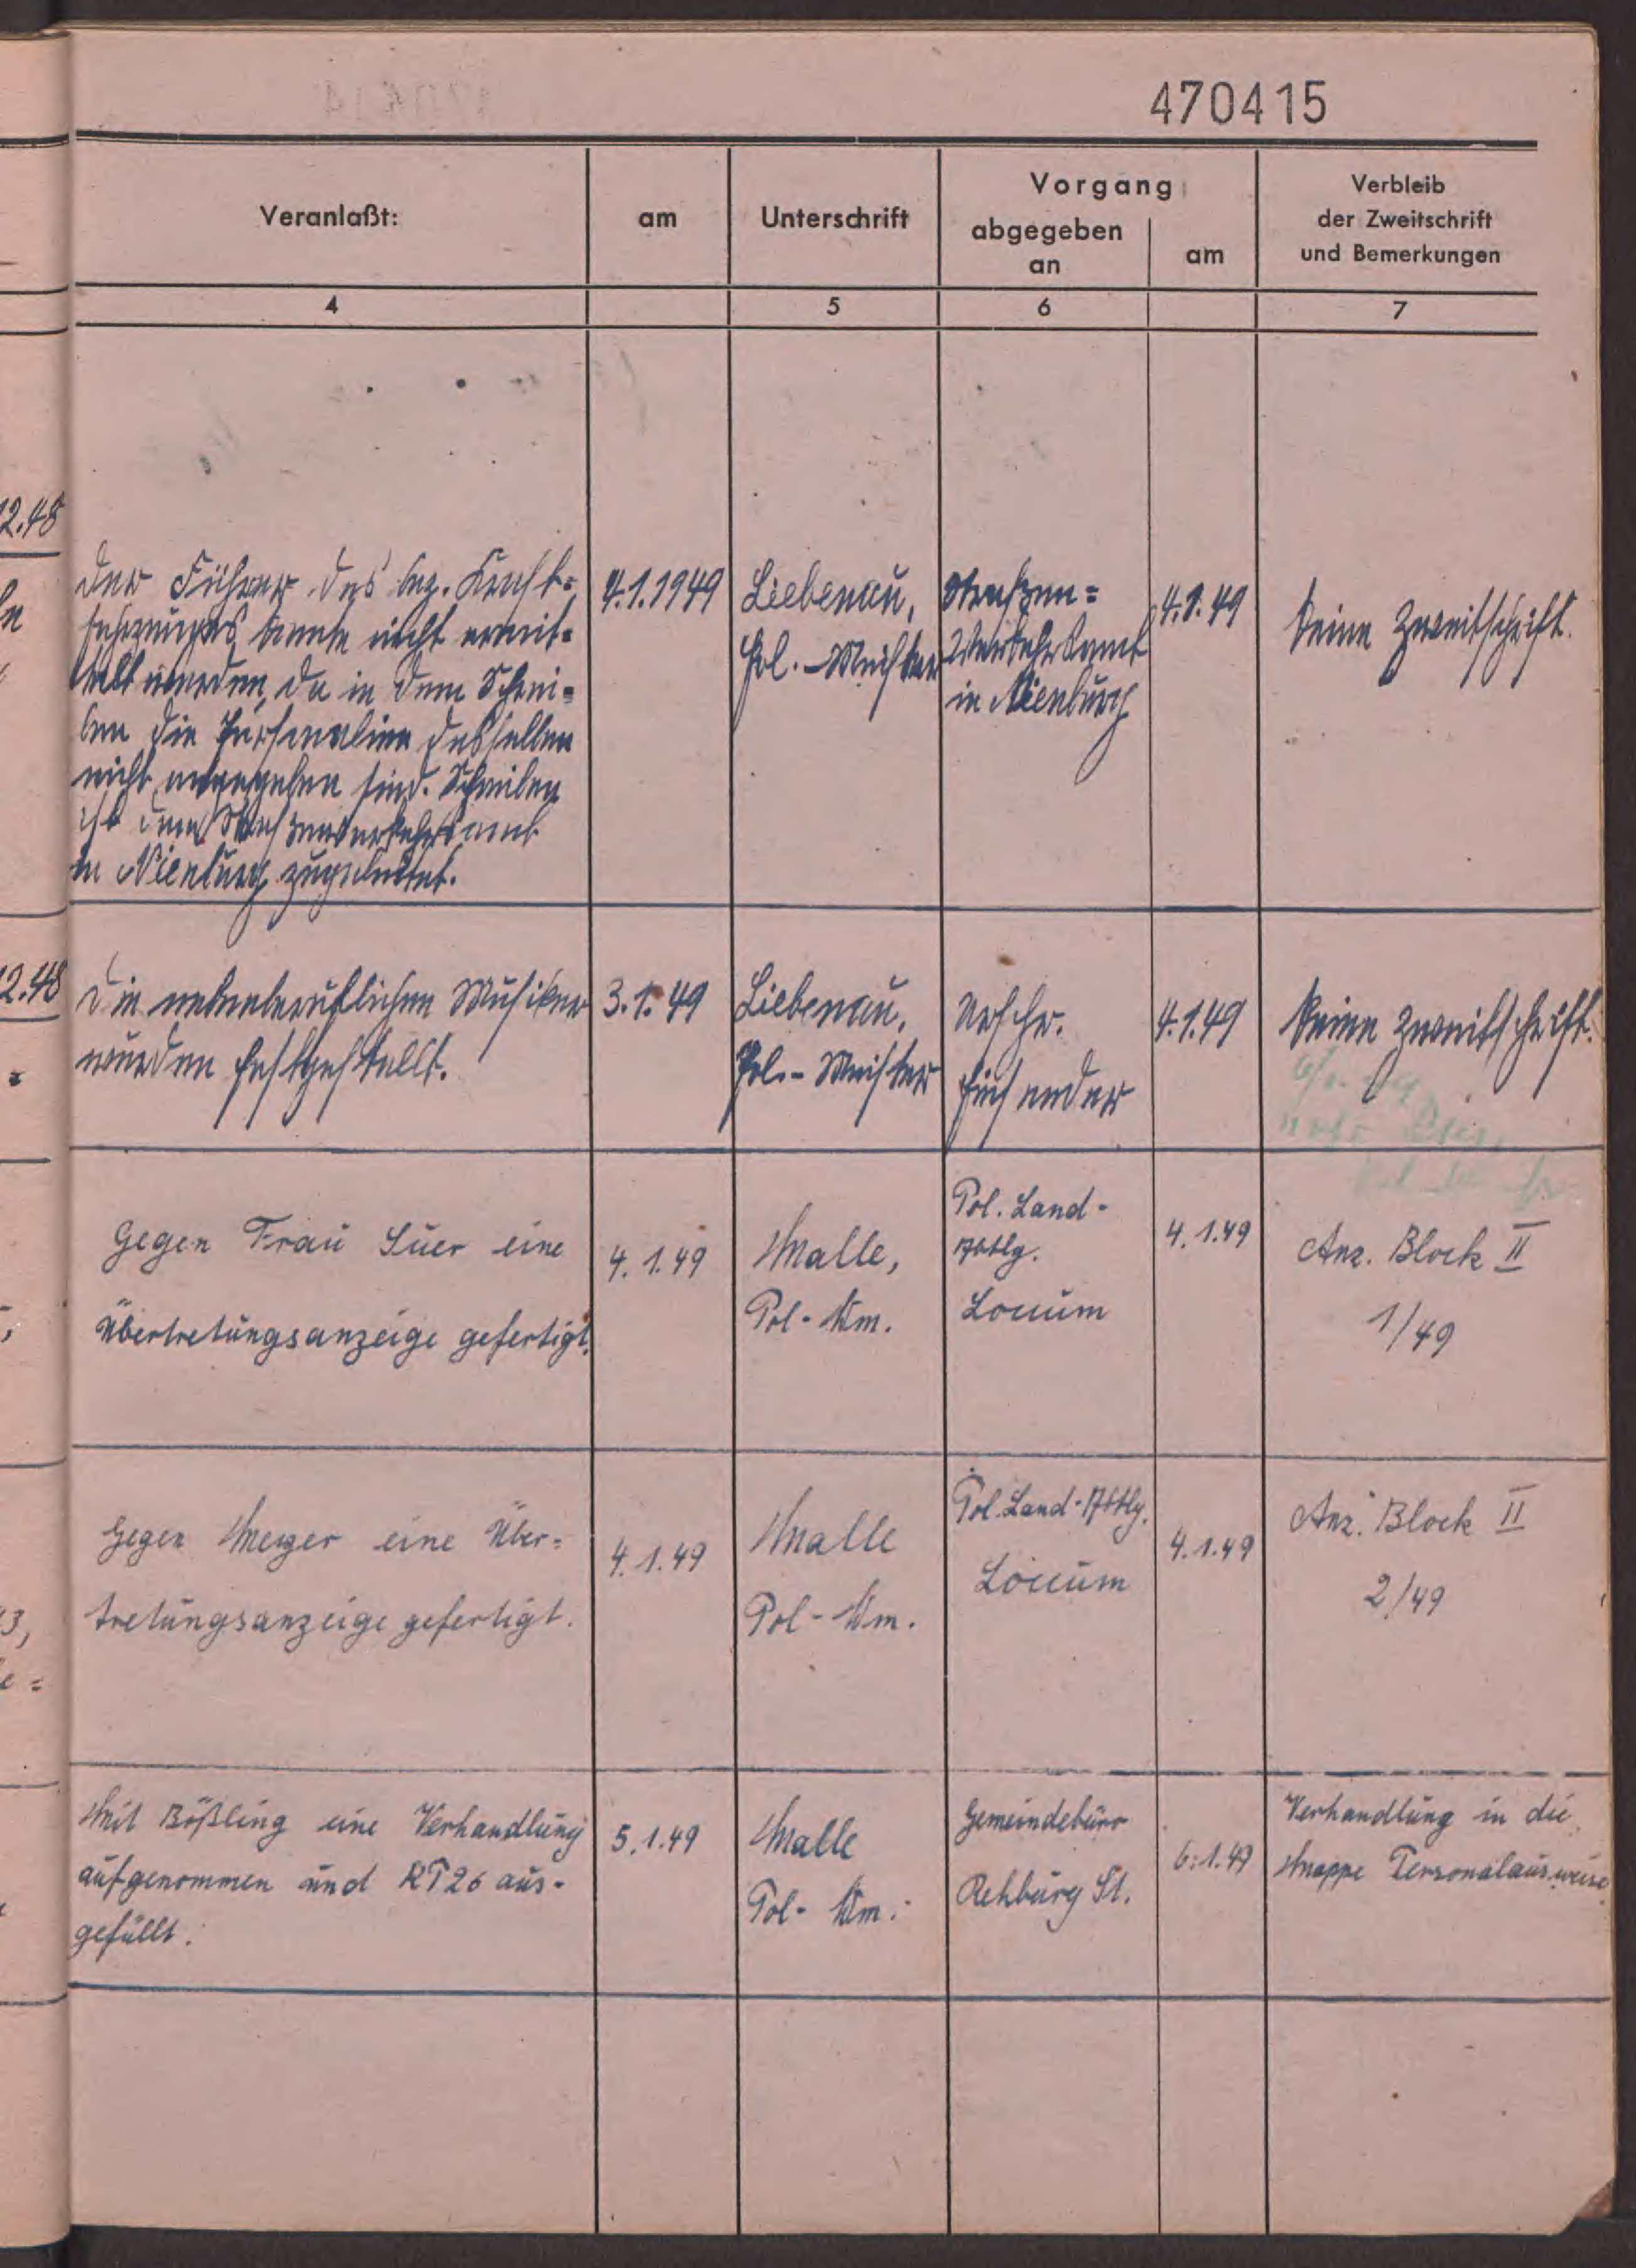 470415
Veranlaßt:
am
Unterschrift
Vorgang
abgegeben
an
am
Verbleib
der Zweitschrift
und Bemerkungen
4
5
6
7
12.48
Der Führer des bez. Kraft=
fahrzeuges konnte nicht ermit=
telt werden, da in dem Schrei=
ben die Personalien desselben
nicht angegeben sind. Schreiben
ist dem Straßenverkehrsamt
in Nienburg zugeleitet.
4.1.1949
Liebenau,
Pol.-Meister
Straßen=
Verkehrsamt
in Nienburg
4.1.49
Keine Zweitschrift.
12.48
Die nebenberuflichen Musiker
wurden festgestellt.
3.1.49
Liebenau,
Pol.-Meister
Urschr.
4.1.49
Keine Zweitschrift.
Gegen Frau Süer eine
Übertretungsanzeige gefertigt.
4.1.49
Malle,
Pol-Wm.
Pol. Land-
Abtlg.
Loccum
4.1.49
Anz. Block II
1/49
Gegen Meyer eine Über=
tretungsanzeige gefertigt.
4.1.49
Malle
Pol-Wm.
Pol. Land-Abtlg.
Loccum
4.1.49
Anz. Block II
2/49
Mit Bößling eine Verhandlung
aufgenommen und RP26 aus-
gefüllt.
5.1.49
Malle
Pol-Wm.
Gemeindebüro
Rehburg St.
6.1.49
Verhandlung in die
Mappe Personalausweise.